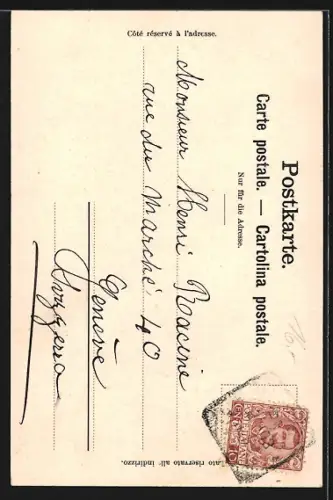 Côté réservé à l'adresse.
Postkarte.
Carte postale. — Cartolina postale.
Nur für die Adresse.
Monsieur Henri Racine
rue du Marché 40
Genève
Svizzera
Lato riservato all' indirizzo.